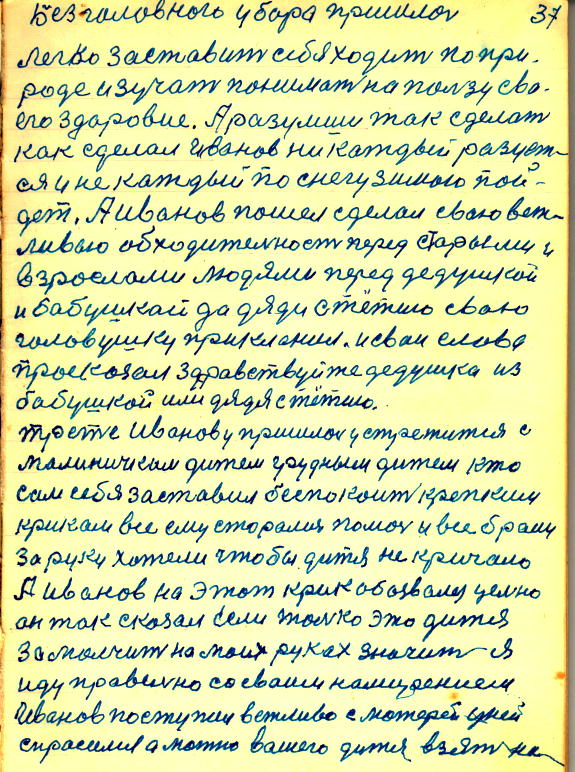 Без головного убора пришлос 37
легко заставит себя ходит по при-
роде изучат понимат на ползу сва-
его здаровие. А разумии так сделат
как сделал Иванов ни каждый разует-
ся и не каждый по снегу зимою пой-
дет. А Иванов пошел сделал сваю веж-
ливаю обходителност перед старыми и
взрослами людями перед дедушкой
и бабушкай да дяди стётию сваю
головушку приклания. и сваи слова
проскозал здравствуйте дедушка из
бабушкой или дядя стётию.
Трете Иванову пришлос устретится с
малиничким дитем грудным дитем кто
сам себя заставил беспокоит крепким
крикам все ему сторалис помоч и все брали
за руку хотели чтобы дитя не кричало
А Иванов на этот крик обозвался целно
он так сказал если толко это дитя
замолчит на моих руках значит я
иду правелно со сваим намирением
Иванов поступил вежливо с матерей уней
спрасилия а можно вашего дитя взят на